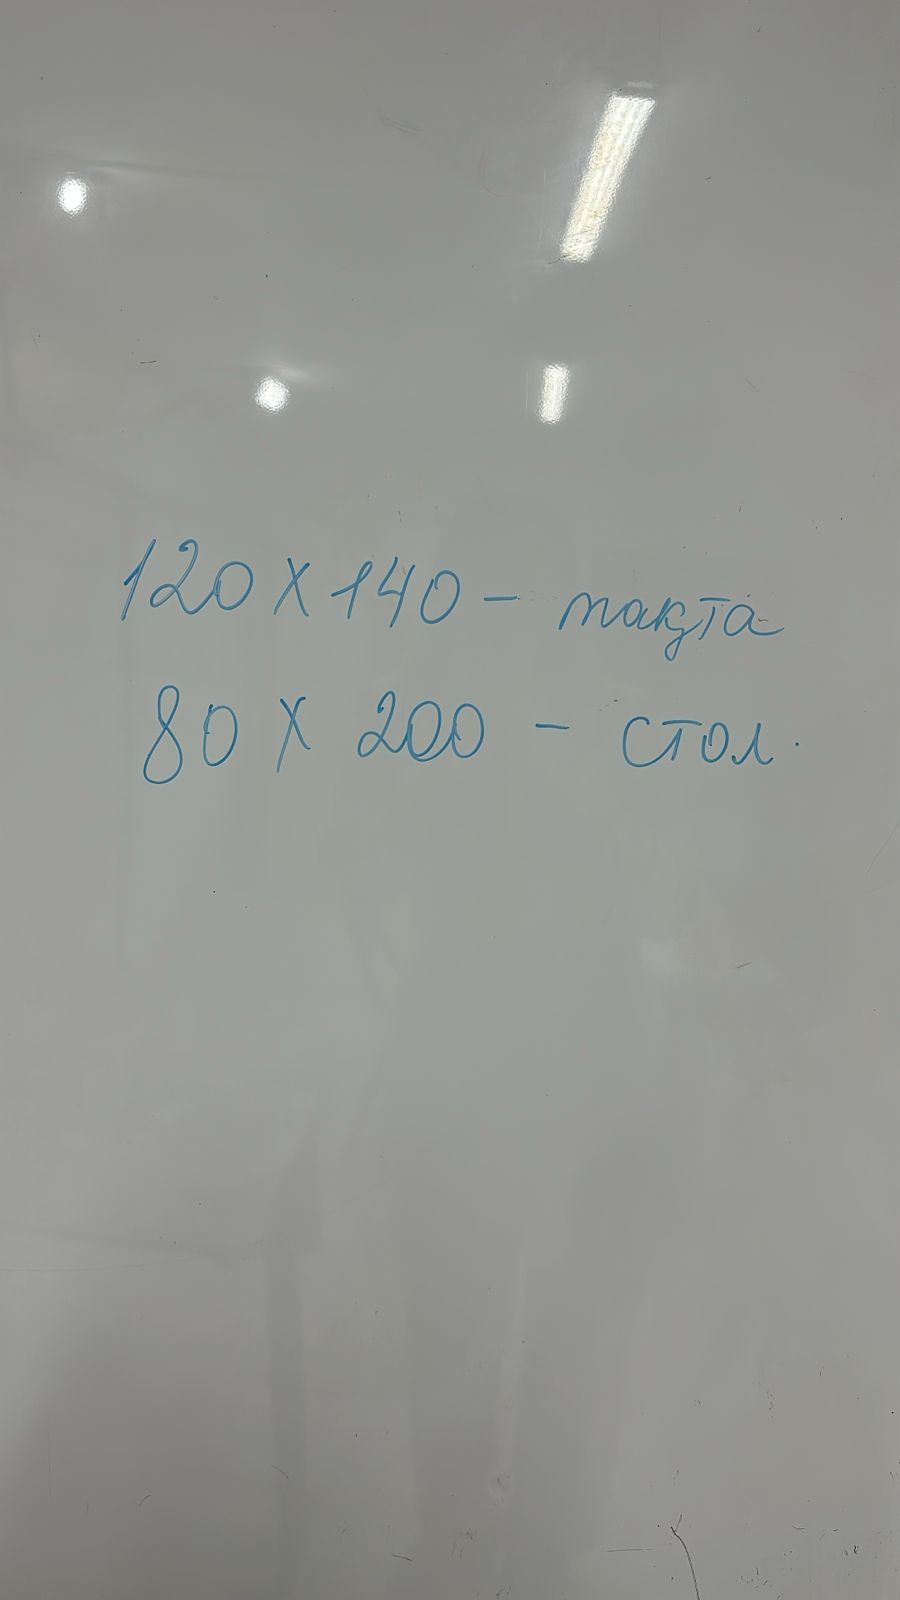 120 X 140 - тақта
80 X 200 - стол.